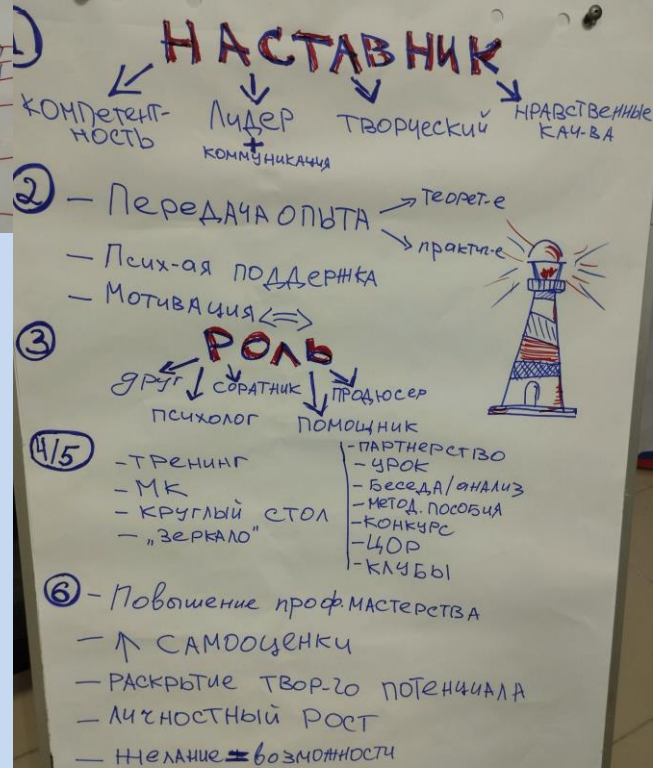 1
НАСТАВНИК
КОМПЕТЕНТ-
НОСТЬ
ЛИДЕР
+
КОММУНИКАЦИЯ
ТВОРЧЕСКИЙ
НРАВСТВЕННЫЕ
КАЧ-ВА
2
– ПЕРЕДАЧА ОПЫТА
теорет-е
практич-е
– Псих-ая ПОДДЕРЖКА
– МОТИВАЦИЯ <=>
3
РОЛЬ
друг
СОРАТНИК
ПРОДЮСЕР
ПСИХОЛОГ
ПОМОЩНИК
4/5
- ТРЕНИНГ
- МК
- КРУГЛЫЙ СТОЛ
- „ЗЕРКАЛО"
- ПАРТНЕРСТВО
- УРОК
- БЕСЕДА/АНАЛИЗ
- МЕТОД. ПОСОБИЯ
- КОНКУРС
- ЦОР
- КЛУБЫ
6
– Повышение проф. МАСТЕРСТВА
– ↑ САМООЦЕНКИ
– РАСКРЫТИЕ ТВОР-ГО ПОТЕНЦИАЛА
– ЛИЧНОСТНЫЙ РОСТ
– ЖЕЛАНИЕ = ВОЗМОЖНОСТИ